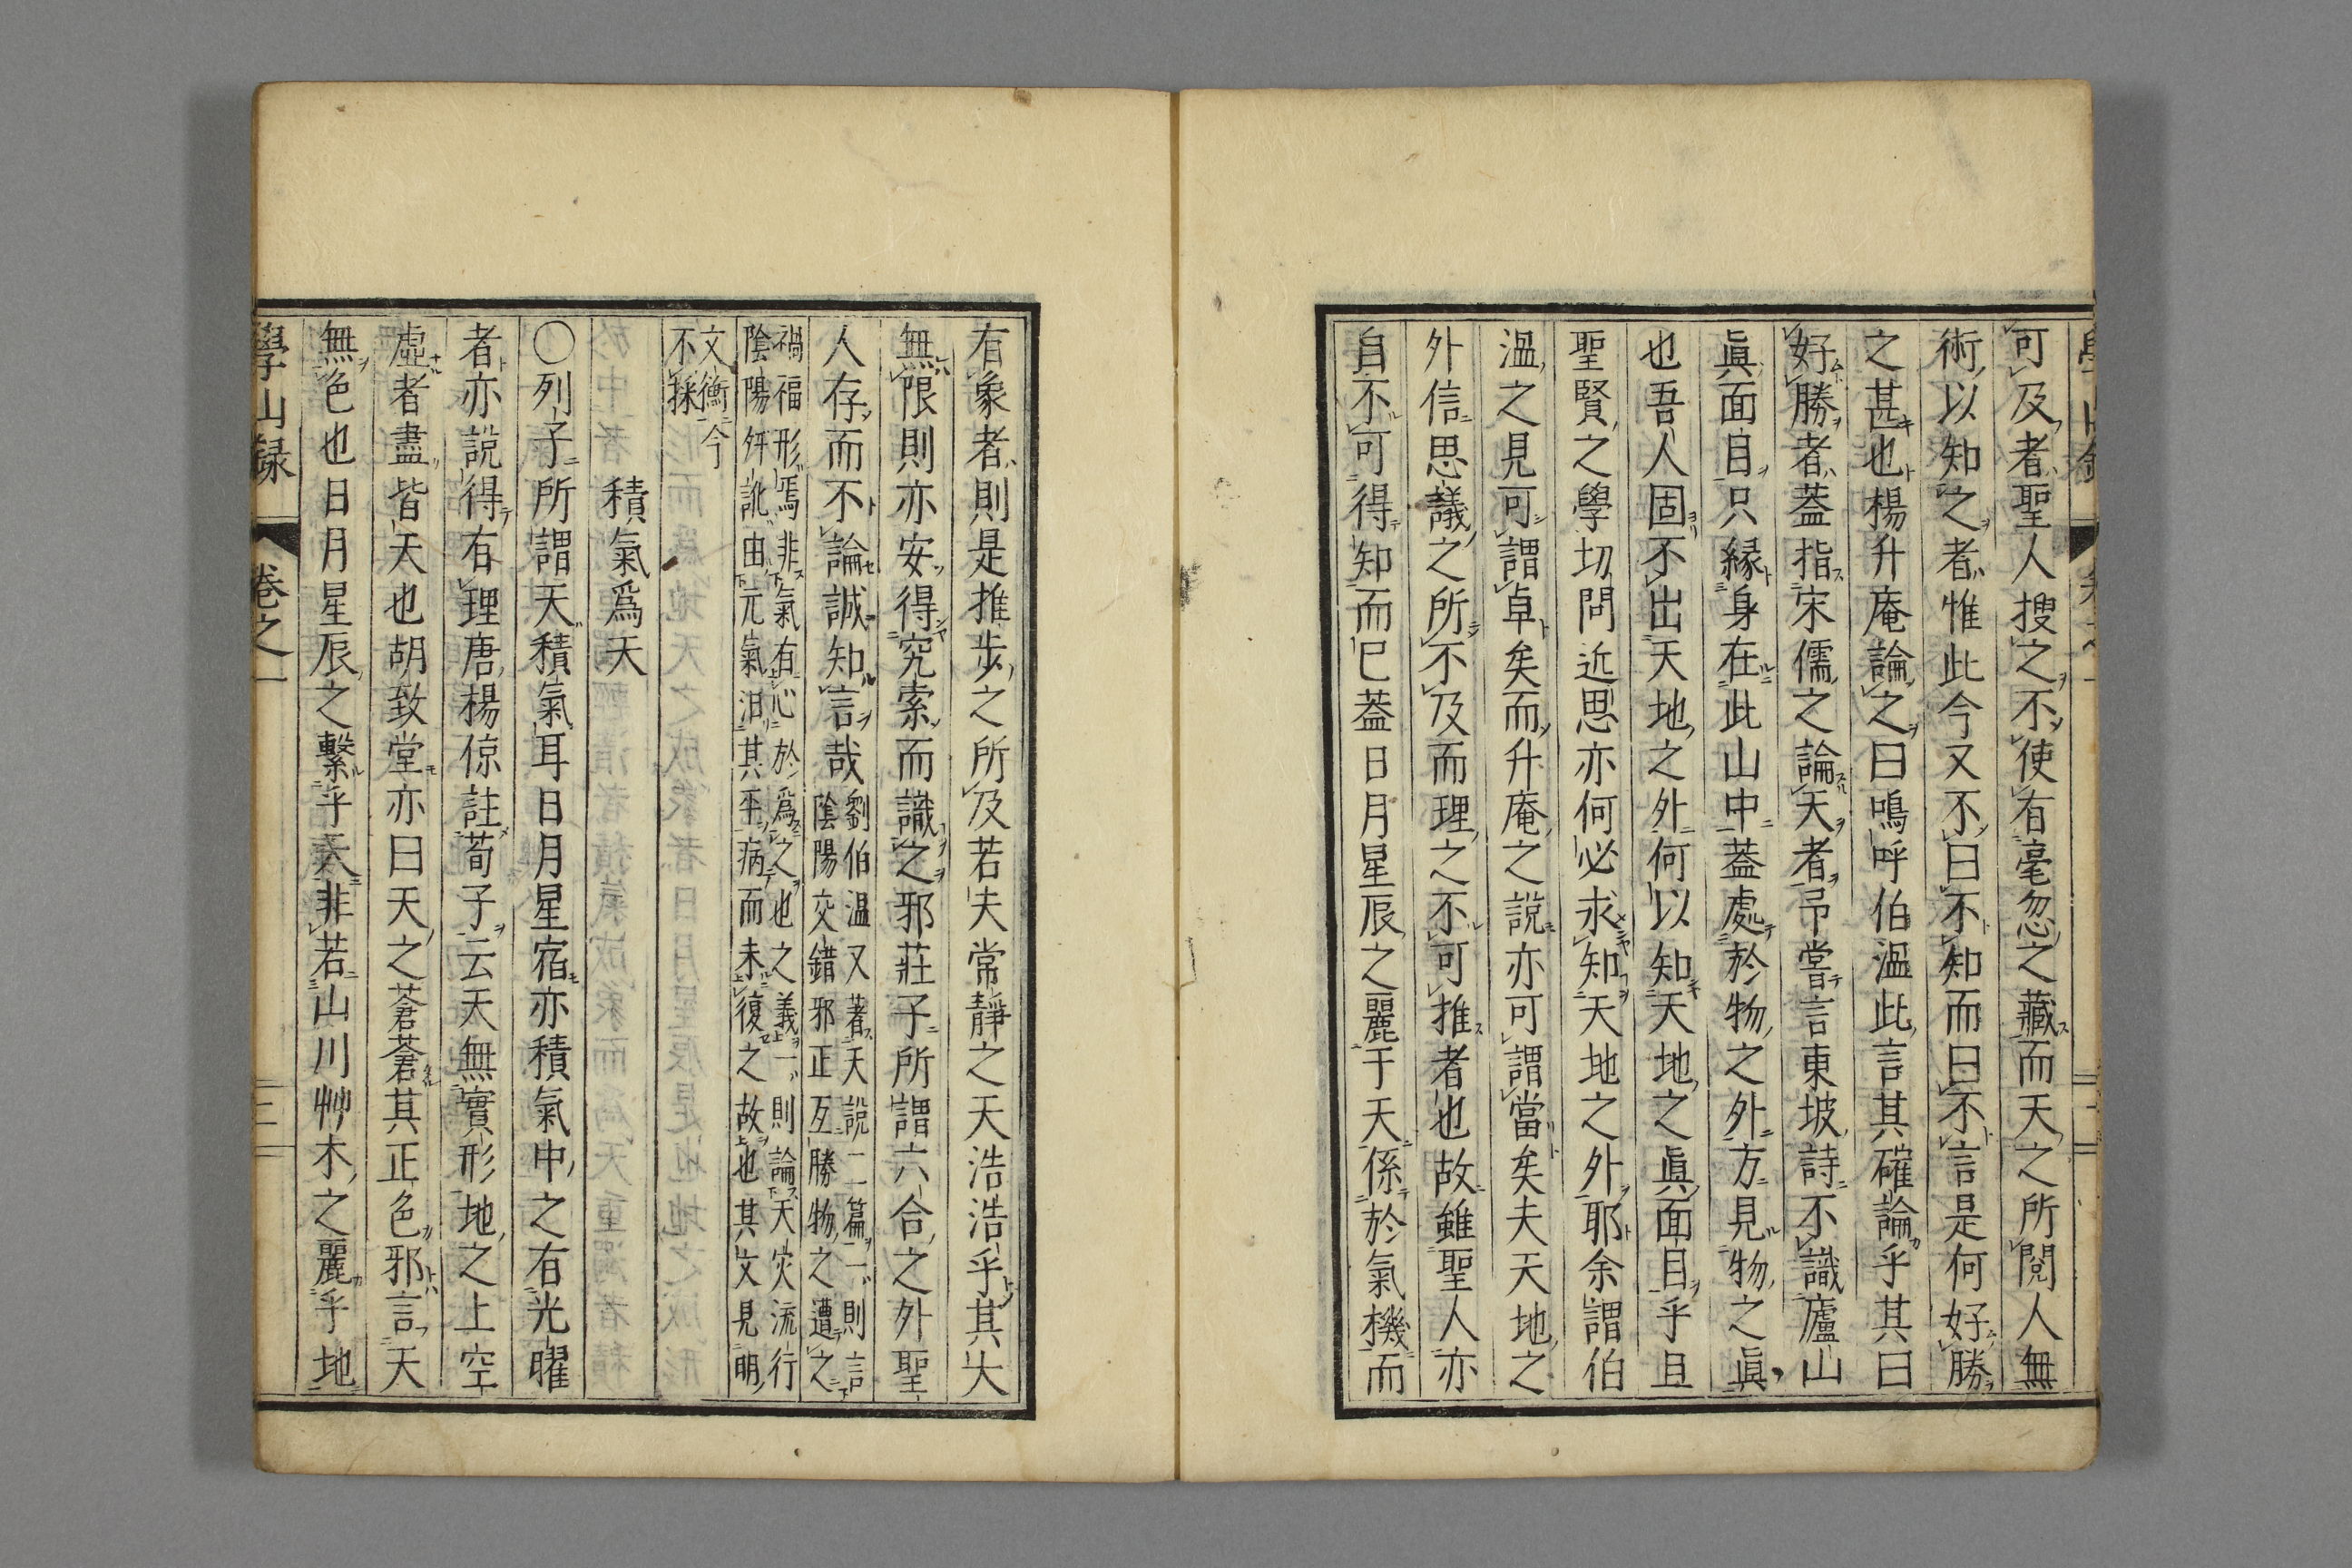 可及者聖人搜之不使有毫忽之藏而天之所閱人無
術以知之者惟此今又不曰不知而曰不言是何好勝
之甚也楊升庵論之曰鳴呼伯溫此言其確論乎其曰
好勝者蓋指宋儒之論天者吊嘗言東坡詩不識廬山
眞面目只緣身在此山中蓋處於物之外方見物之眞
也吾人固不出天地之外何以知天地之眞面目乎且
聖賢之學切問近思亦何必求知天地之外耶余謂伯
溫之見可謂卓矣而升庵之說亦可謂當矣夫天地之
外信思議之所不及而理之不可推者也故雖聖人亦
自不可得知而已蓋日月星辰之麗于天係於氣機而
有象者則是推步之所及若夫常靜之天浩浩乎其大
無限則亦安得究索而識之邪莊子所謂六合之外聖
人存而不論誠知言哉
劉伯溫又著天說二篇一則言
陰陽交錯邪正互勝物之遭之
禍福形焉非氣有心於爲之也之義一則論天灾流行
陰陽舛訛由元氣汨其平病而未復之故也其文見明
文衡今
不採
積氣爲天
○列子所謂天積氣耳日月星宿亦積氣中之有光曜
者亦說得有理唐楊倞註荀子云天無實形地之上空
虛者盡皆天也胡致堂亦曰天之蒼蒼其正色邪言天
無色也日月星辰之繫乎天非若山川艸木之麗乎地
學山録 卷之一 三